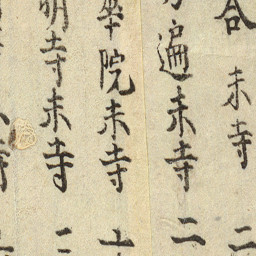 合 末寺 二
遍末寺 二
華院末寺 十
明寺末寺 二
寺